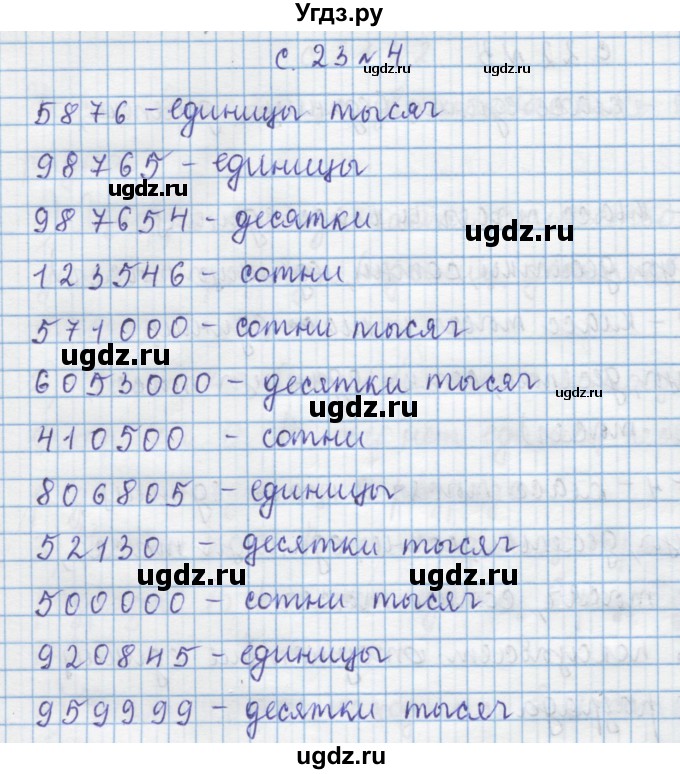 Угдз.ру
с. 23 № 4
ugdz.ru ugdz.ru
5876 - единицы тысяч
98765 - единицы
ugdz.ru
987654 - десятки
ugdz.ru
123546 - сотни
571000 - сотни тысяч
ugdz.ru
6053000 - десятки тысяч
ugdz.ru ugdz.ru
410500 - сотни
806805 - единицы
52130 - десятки тысяч
ugdz.ru ugdz.ru
500000 - сотни тысяч
920845 - единицы
959999 - десятки тысяч
ugdz.ru